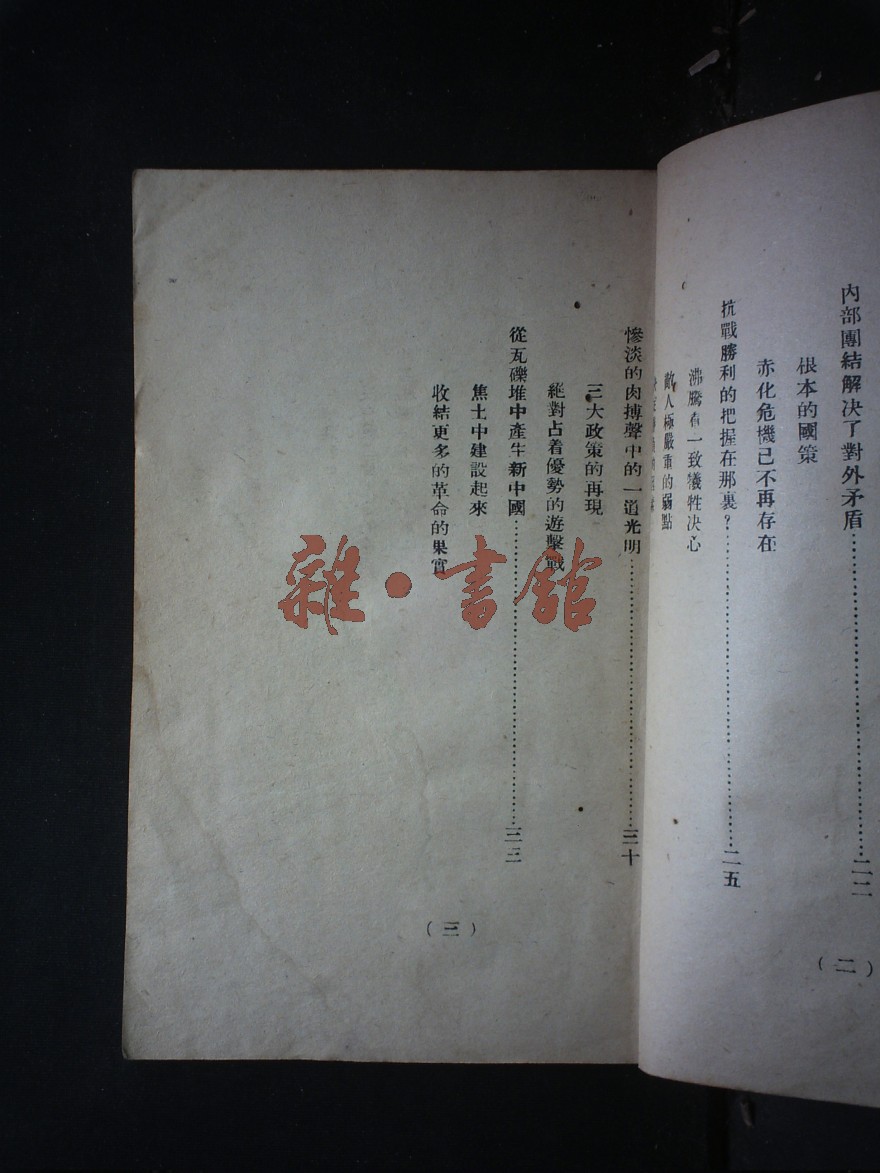 內部團結解决了對外矛盾……二二
根本的國策
赤化危機已不再存在
抗戰勝利的把握在那裏？……二五
沸騰着一致犧牲决心
敵人極嚴重的弱點
(二)
慘淡的肉搏聲中的一道光明……三十
三大政策的再現
絕對占着優勢的遊擊戰
從瓦礫堆中產生新中國……三三
焦土中建設起來
收結更多的革命的果實
(三)
雜·書館